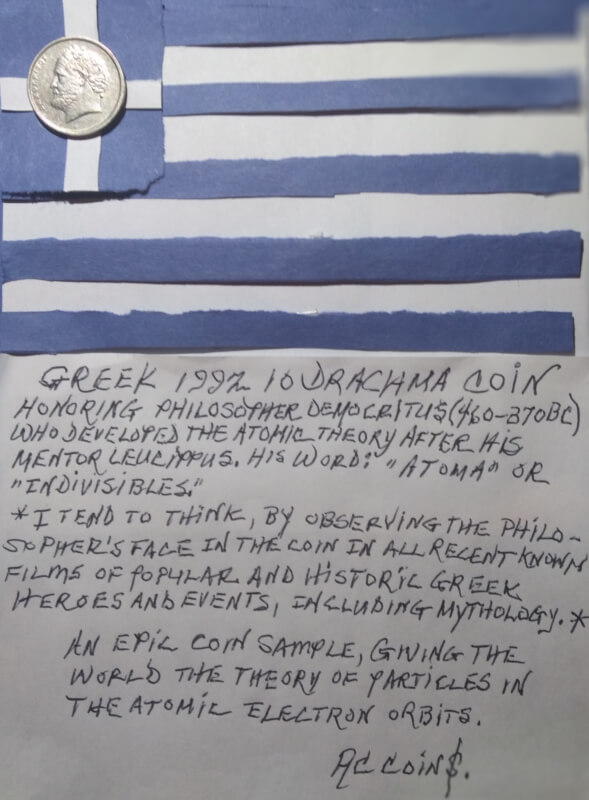 GREEK 1992 10 DRACHMA COIN
HONORING PHILOSOPHER DEMOCRITUS (460-370BC)
WHO DEVELOPED THE ATOMIC THEORY AFTER HIS
MENTOR LEUCIPPUS. HIS WORD: "ATOMA" OR
"INDIVISIBLES."
*I TEND TO THINK, BY OBSERVING THE PHILO-
SOPHER'S FACE IN THE COIN IN ALL RECENT KNOWN
FILMS OF POPULAR AND HISTORIC GREEK
HEROES AND EVENTS, INCLUDING MYTHOLOGY.*
AN EPIC COIN SAMPLE, GIVING THE
WORLD THE THEORY OF PARTICLES IN
THE ATOMIC ELECTRON ORBITS.
AC COIN$.